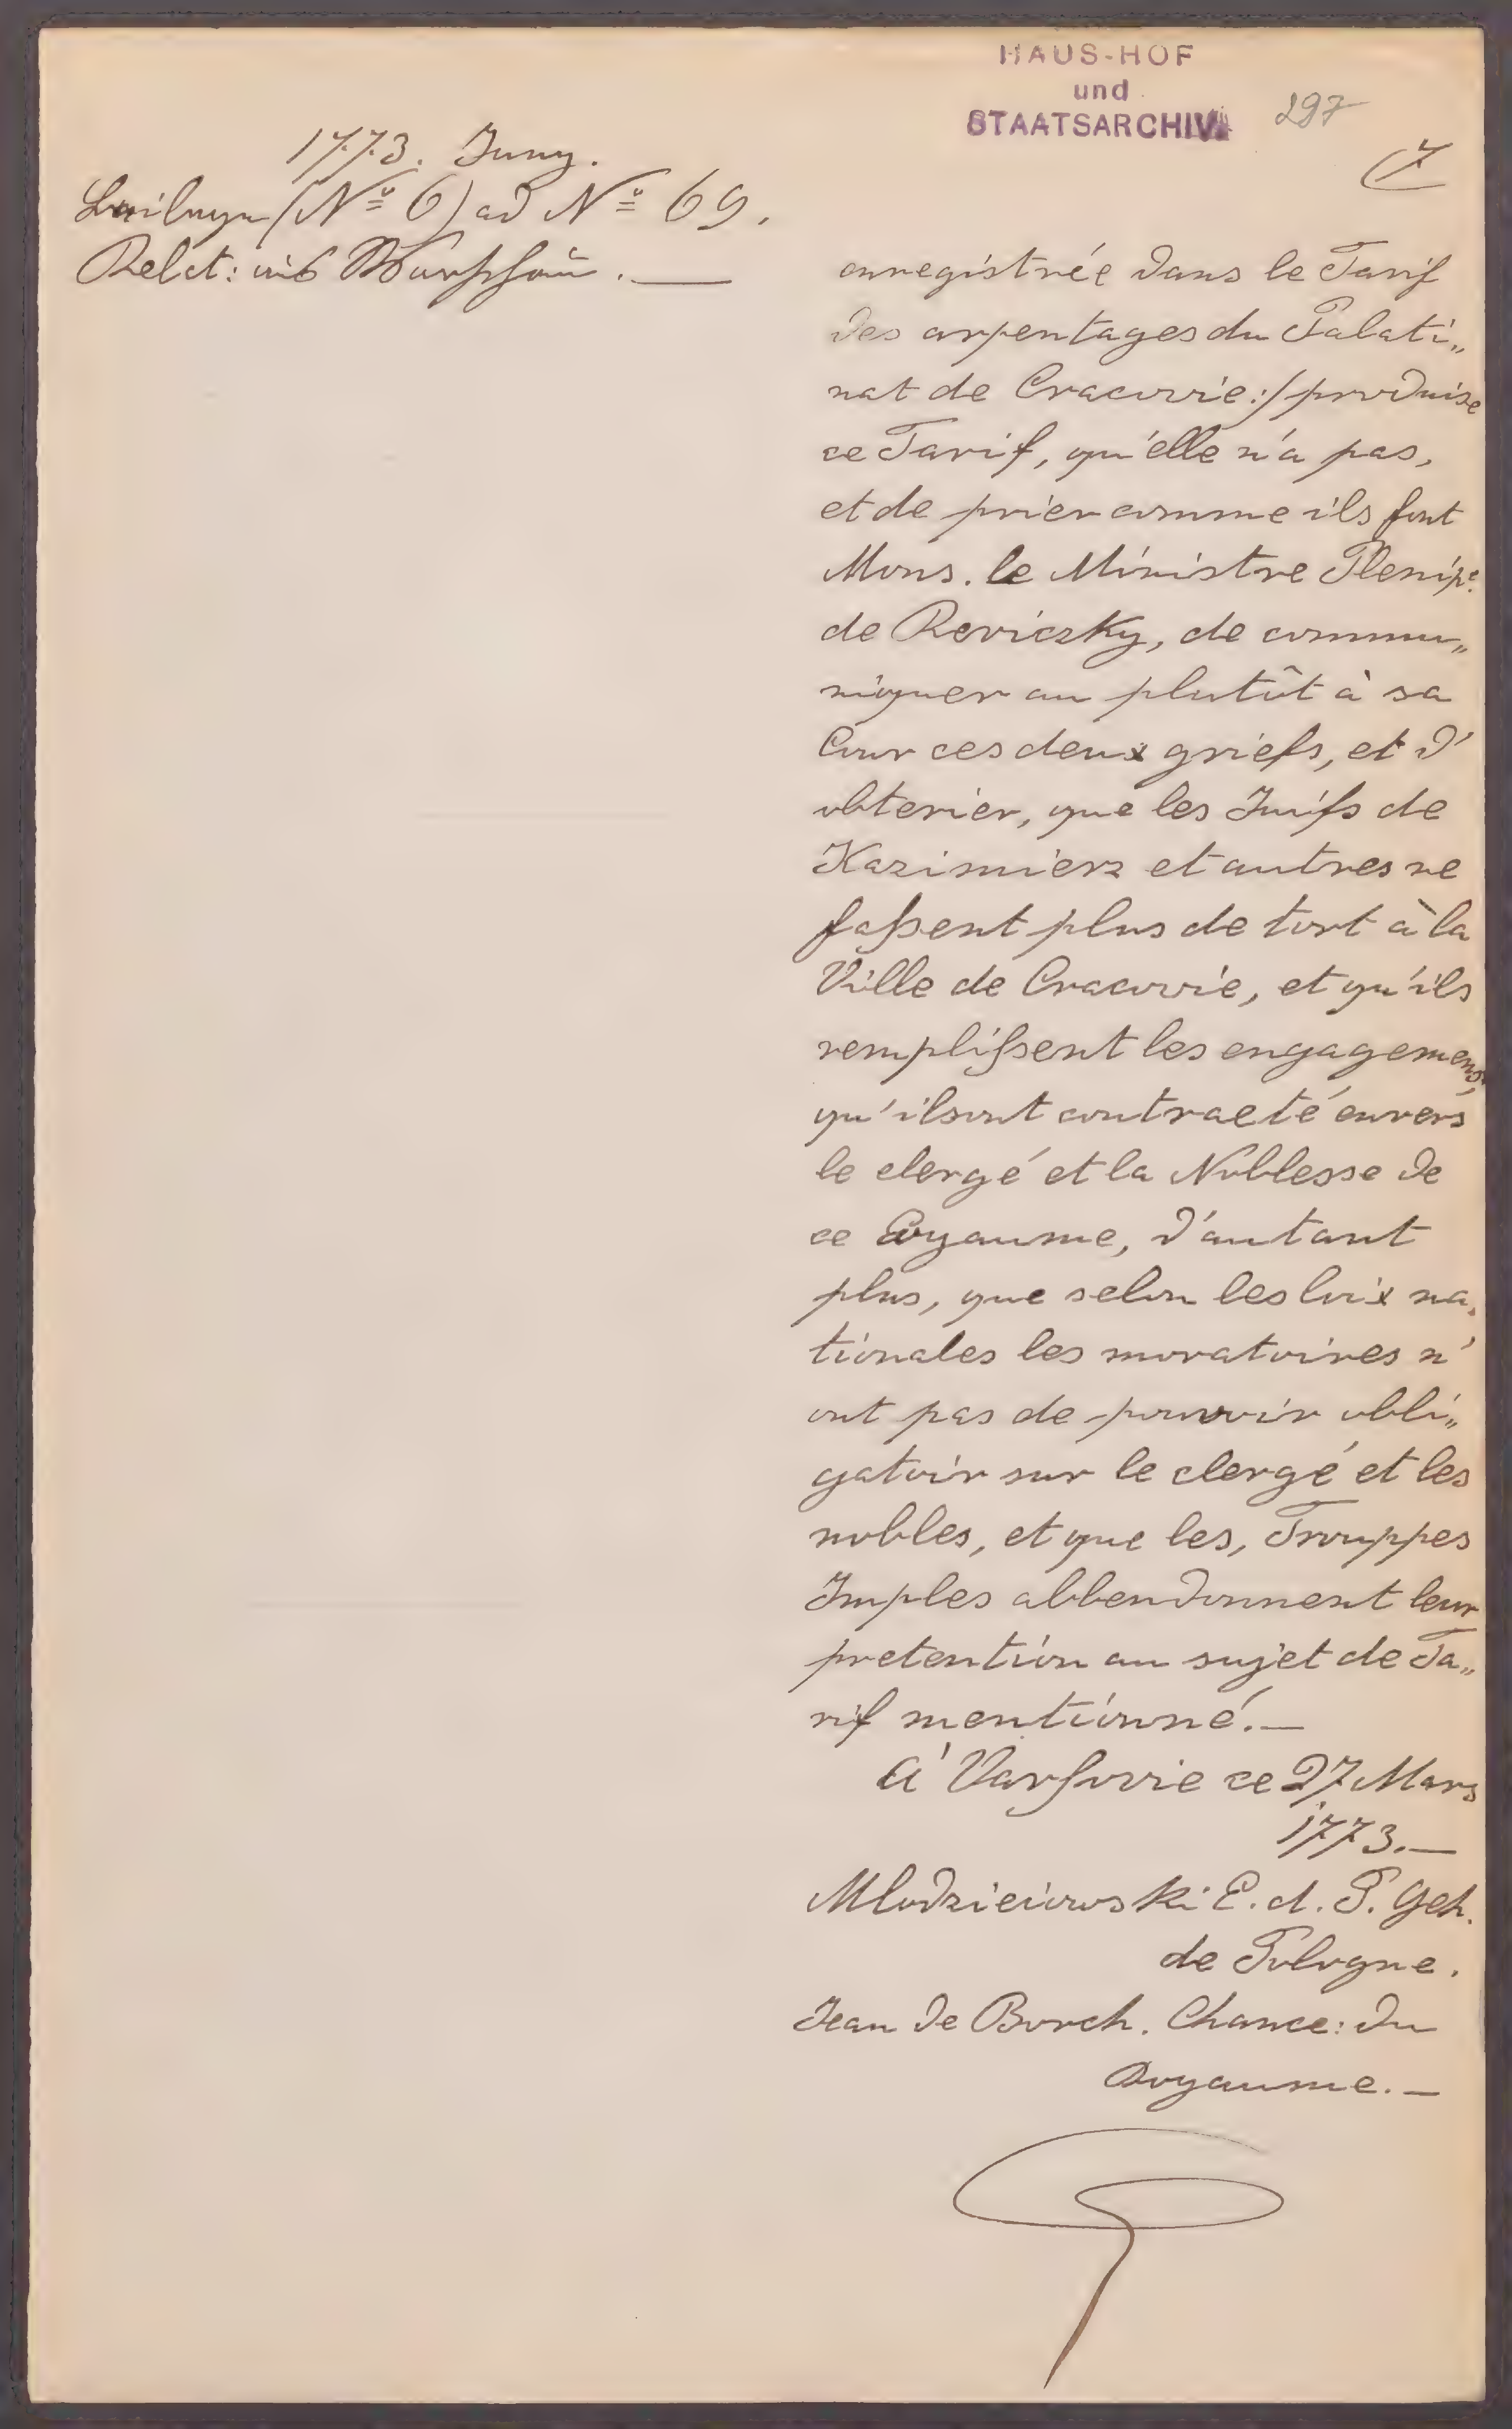 HAUS-HOF
und
STAATSARCHIV
297
7
1773. Juny.
Beilage (Nº 6) ad Nº 69.
Relat: aus Warschau. —
enregistrée dans le Tarif
des arpentages du Palati„
nat de Cracovie:/ produise
ce Tarif, qu'elle n'a pas,
et de prier comme ils font
Mons. le Ministre Plenip.
de Reviczky, de commu„
niquer au plutôt à sa
Cour ces deux griefs, et d'
obtenier, que les Juifs de
Kazimierz et autres ne
fassent plus de tort à la
Ville de Cracovie, et qu'ils
remplissent les engagemens,
qu'ils ont contracté envers
le clergé et la Noblesse de
ce Royaume, d'autant
plus, que selon les loix na„
tionales les moratoires n'
ont pas de pouvoir obli„
gatoir sur le clergé et les
nobles, et que les, Trouppes
Imples abbendonnent leur
pretention au sujet de Ta„
rif mentionné. —
à Varsovie ce 27 Mars
1773. —
Mlodzieiowski E. d. P. Gch.
de Pologne.
Jean de Borch. Chance: du
Royaume. —